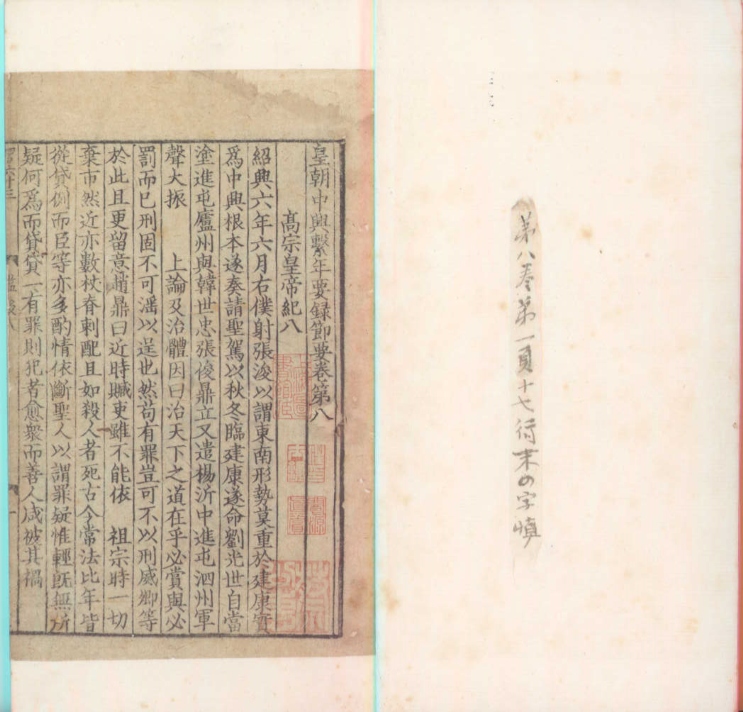 第八巻第一頁十七行末の字慎
皇朝中興繫年要録節要卷第八
高宗皇帝紀八
紹興六年六月右僕射張浚以謂東南形勢莫重於建康實
爲中興根本遂奏請聖駕以秋冬臨建康遂命劉光世自當
塗進屯廬州與韓世忠張俊鼎立又遣楊沂中進屯泗州軍
聲大振 上論及治體因曰治天下之道在乎必賞與必
罰而已刑固不可滛以逞也然苟有罪豈可不以刑威卿等
於此且更留意趙鼎曰近時贓吏雖不能依 祖宗時一切
棄市然近亦數杖脊刺配且如殺人者死古今常法比年皆
從貸例而臣等亦多酌情依斷聖人以謂罪疑惟輕旣無所
疑何爲而貸貸一有罪則犯者愈衆而善人咸被其禍